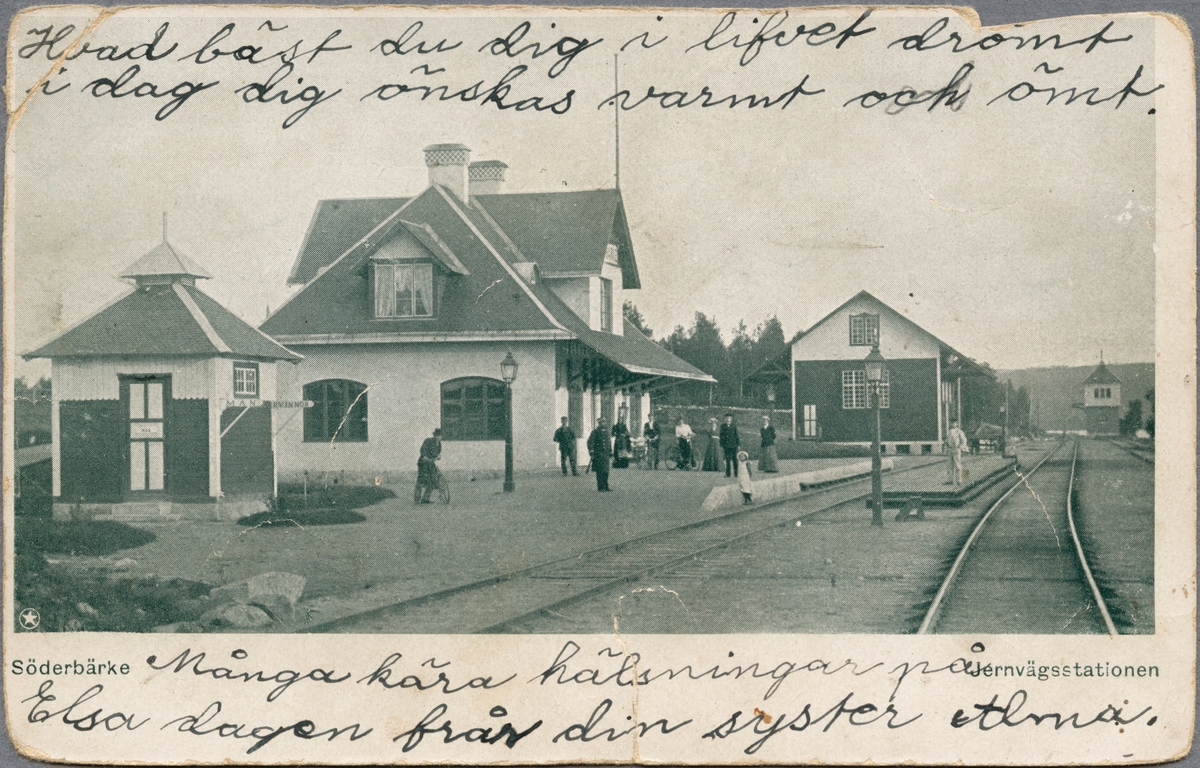 Hvad bäst du dig i lifvet drömt
i dag dig önskas varmt och ömt.
MÄN
Söderbärke
Jernvägsstationen
Många kära hälsningar på
Elsa dagen från din syster Alma.